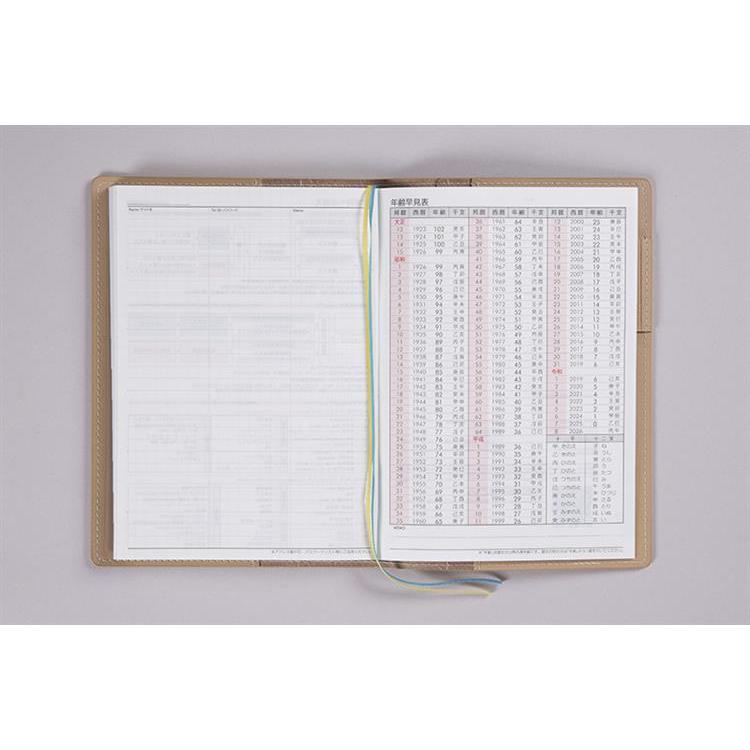 Name/サイト名 Tel/ID・パスワード Memo
年齢早見表
邦暦 西暦 年齢 干支 邦暦 西暦 年齢 干支 邦暦 西暦 年齢 干支
大正 36 1961 64 辛丑 12 2000 25 庚辰
12 1923 102 癸亥 37 1962 63 壬寅 13 2001 24 辛巳
13 1924 101 甲子 38 1963 62 癸卯 14 2002 23 壬午
14 1925 100 乙丑 39 1964 61 甲辰 15 2003 22 癸未
15 1926 99 丙寅 40 1965 60 乙巳 16 2004 21 甲申
昭和 41 1966 59 丙午 17 2005 20 乙酉
1 1926 99 丙寅 42 1967 58 丁未 18 2006 19 丙戌
2 1927 98 丁卯 43 1968 57 戊申 19 2007 18 丁亥
3 1928 97 戊辰 44 1969 56 己酉 20 2008 17 戊子
4 1929 96 己巳 45 1970 55 庚戌 21 2009 16 己丑
5 1930 95 庚午 46 1971 54 辛亥 22 2010 15 庚寅
6 1931 94 辛未 47 1972 53 壬子 23 2011 14 辛卯
7 1932 93 壬申 48 1973 52 癸丑 24 2012 13 壬辰
8 1933 92 癸酉 49 1974 51 甲寅 25 2013 12 癸巳
9 1934 91 甲戌 50 1975 50 乙卯 26 2014 11 甲午
10 1935 90 乙亥 51 1976 49 丙辰 27 2015 10 乙未
11 1936 89 丙子 52 1977 48 丁巳 28 2016 9 丙申
12 1937 88 丁丑 53 1978 47 戊午 29 2017 8 丁酉
13 1938 87 戊寅 54 1979 46 己未 30 2018 7 戊戌
14 1939 86 己卯 55 1980 45 庚申 31 2019 6 己亥
15 1940 85 庚辰 56 1981 44 辛酉 令和
16 1941 84 辛巳 57 1982 43 壬戌 1 2019 6 己亥
17 1942 83 壬午 58 1983 42 癸亥 2 2020 5 庚子
18 1943 82 癸未 59 1984 41 甲子 3 2021 4 辛丑
19 1944 81 甲申 60 1985 40 乙丑 4 2022 3 壬寅
20 1945 80 乙酉 61 1986 39 丙寅 5 2023 2 癸卯
21 1946 79 丙戌 62 1987 38 丁卯 6 2024 1 甲辰
22 1947 78 丁亥 63 1988 37 戊辰 7 2025 0 乙巳
23 1948 77 戊子 64 1989 36 己巳 8 2026 丙午
24 1949 76 己丑 平成 十干 十二支
25 1950 75 庚寅 1 1989 36 己巳 甲 きのえ 子 ね
26 1951 74 辛卯 2 1990 35 庚午 乙 きのと 丑 うし
27 1952 73 壬辰 3 1991 34 辛未 丙 ひのえ 寅 とら
28 1953 72 癸巳 4 1992 33 壬申 丁 ひのと 卯 う
29 1954 71 甲午 5 1993 32 癸酉 戊 つちのえ 辰 たつ
30 1955 70 乙未 6 1994 31 甲戌 己 つちのと 巳 み
31 1956 69 丙申 7 1995 30 乙亥 庚 かのえ 午 うま
32 1957 68 丁酉 8 1996 29 丙子 辛 かのと 未 ひつじ
33 1958 67 戊戌 9 1997 28 丁丑 壬 みずのえ 申 さる
34 1959 66 己亥 10 1998 27 戊寅 癸 みずのと 酉 とり
35 1960 65 庚子 11 1999 26 己卯 戌 いぬ
亥 い
MEMO